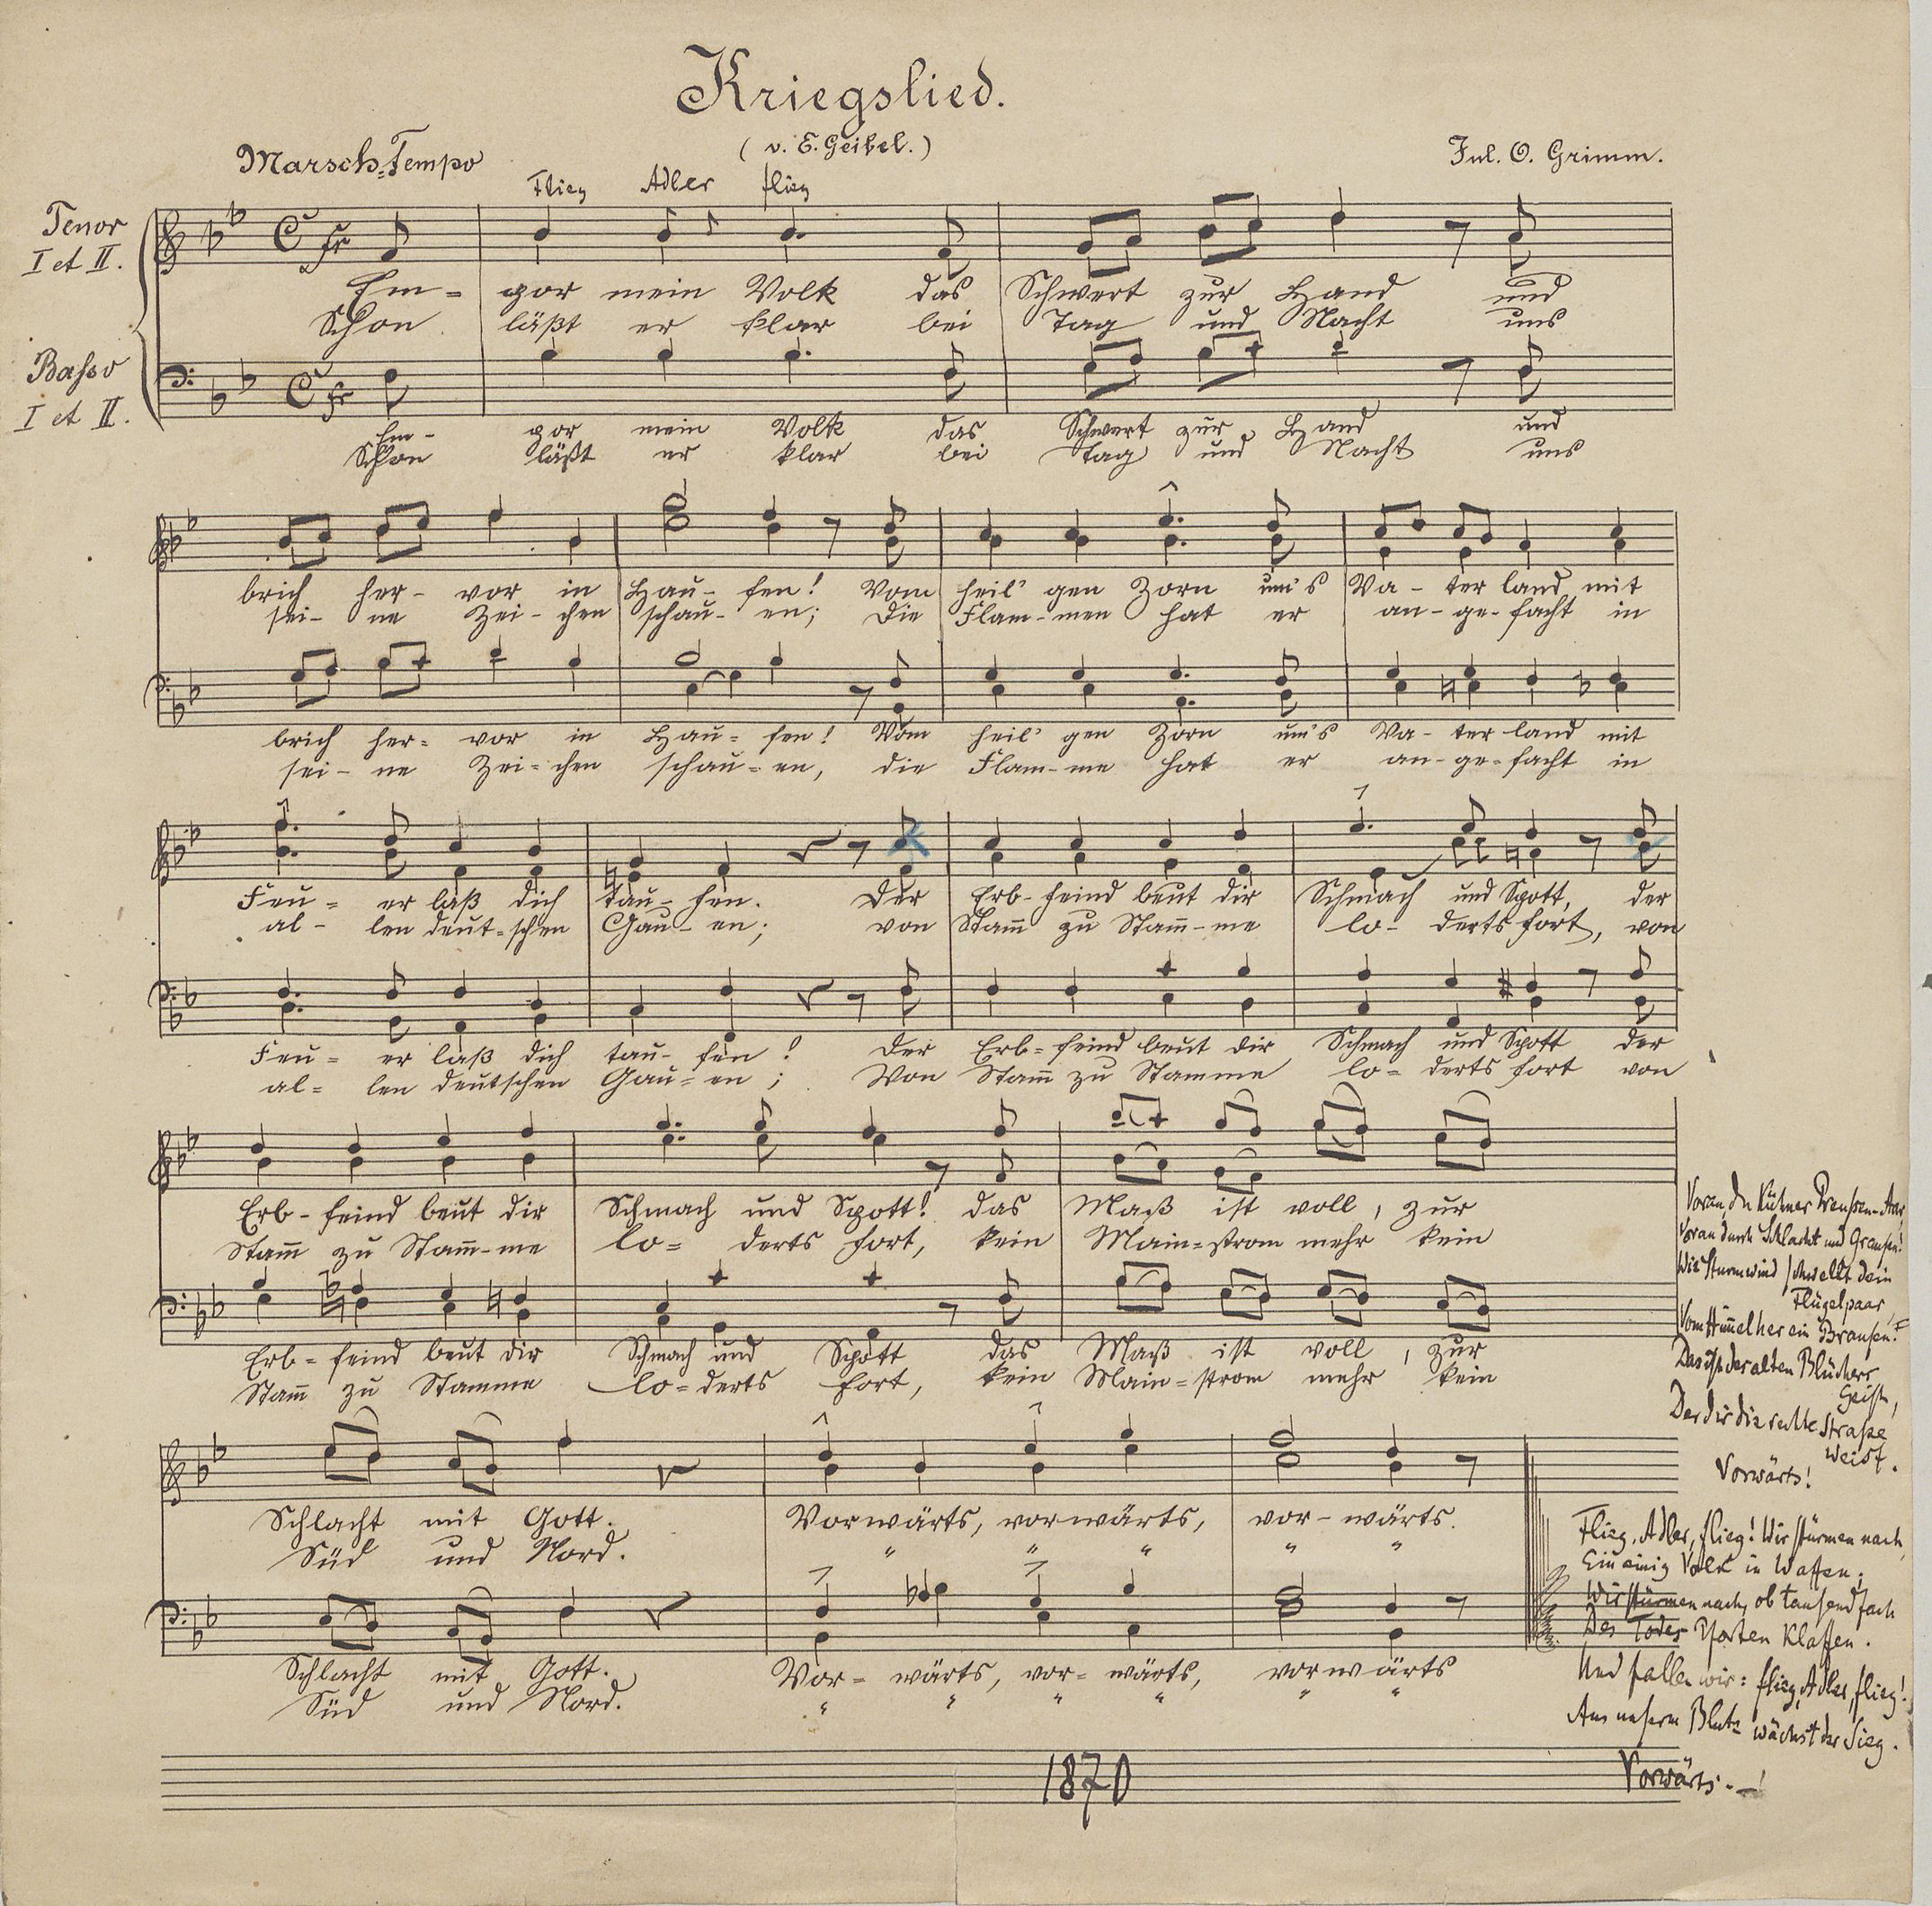 Kriegslied.
(v. E. Geibel.)
Marsch=Tempo
Jul. O. Grimm.
Flieg Adler flieg
Tenor
I et II.
Em= por mein Volk das Schwert zur Hand und
Schon läßt er klar bei Tag und Nacht uns
Basso
I et II.
Em- por mein Volk das Schwert zur Hand und
Schon läßt er klar bei Tag und Nacht uns
brich her- vor in Hau- fen! Vom heil' gen Zorn um's Va- ter land mit
sei- ne Zei- chen schau- en; Die Flam- men hat er an- ge- facht in
brich her= vor in Hau= fen! Vom heil' gen Zorn um's Va- ter land mit
sei- ne Zei= chen schau= en, die Flam- me hat er an- ge- facht in
Feu= er laß dich tau- fen. Der Erb- feind beut dir Schmach und Spott, der
al- len deut- schen Gau- en; von Stam̄ zu Stam̄- me lo- derts fort, von
Feu= er laß dich tau- fen! Der Erb= feind beut dir Schmach und Spott der
al= len deutschen Gau= en; Von Stam̄ zu Stamme lo= derts fort von
Erb- feind beut dir Schmach und Spott! das Maß ist voll, zur
Stam̄ zu Stam̄- me lo= derts fort, kein Main= strom mehr kein
Erb= feind beut dir Schmach und Spott das Maß ist voll, zur
Stam̄ zu Stamme lo= derts fort, kein Main= strom mehr kein
Schlacht mit Gott. Vorwärts, vorwärts, vor- wärts.
Süd und Nord. " " " " "
Schlacht mit Gott. Vor= wärts, vor= wärts, vorwärts
Süd und Nord. " " " " " "
Voran, du kühner Preußen-Aar,
Voran durch Schlacht und Grausen!
Wie Sturmwind schwellt dein
Flügelpaar
Vom Him̄el her ein Brausen!
Das ist des alten Blüchers
Geist,
Der dir die rechte Straße
weist.
Vorwärts!
Flieg, Adler, flieg! Wir stürmen nach,
Ein einig Volk in Waffen;
Wir stürmen nach, ob tausendfach
Des Todes Pforten klaffen.
Und fallen wir: flieg, Adler, flieg!
Aus unserm Blute wächst der Sieg.
Vorwärts.-!
1870